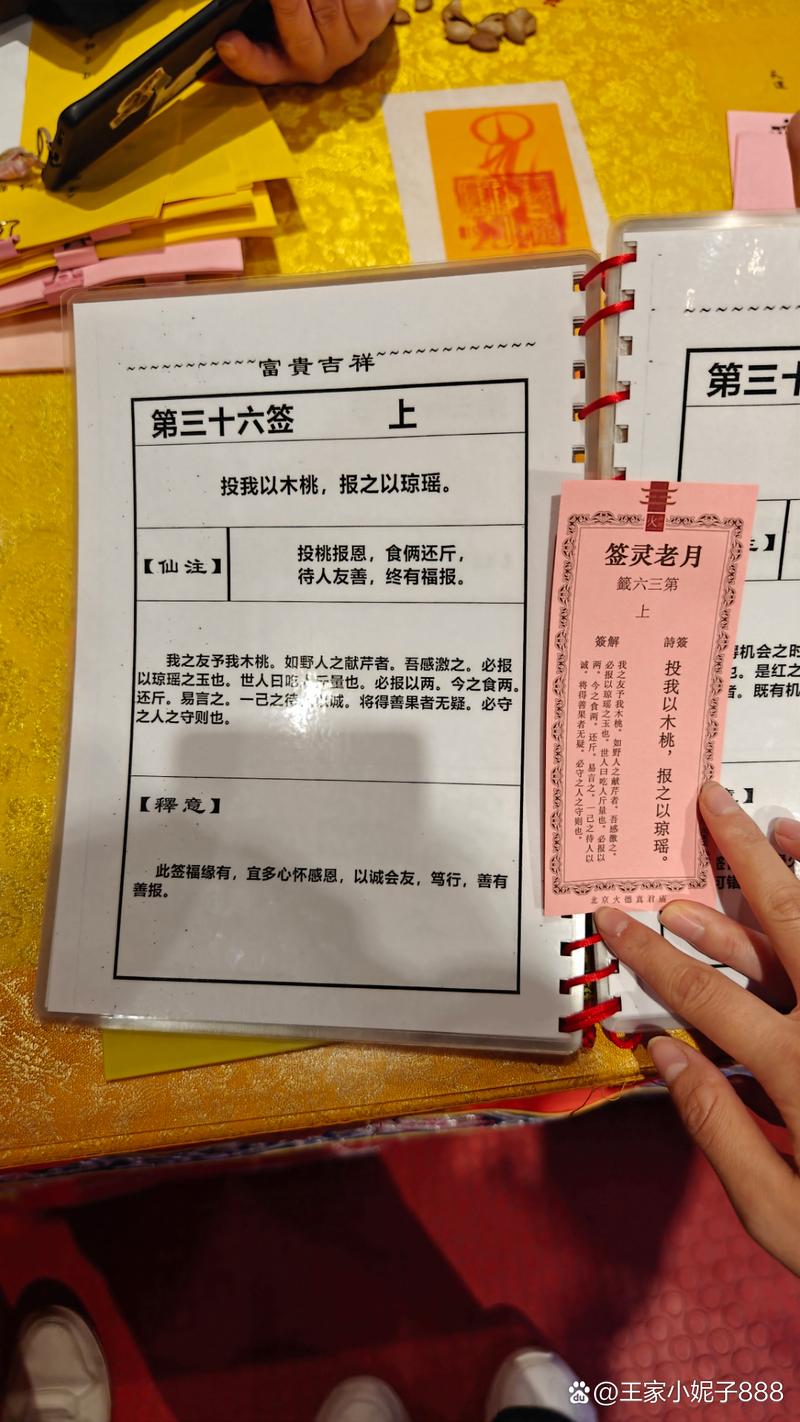 ~~~~~~~~~~~富貴吉祥~~~~~~~~~~~
第三十六签 上
投我以木桃，报之以琼瑶。
【仙注】
投桃报恩，食俩还斤，
待人友善，终有福报。
我之友予我木桃。如野人之献芹者。吾感激之。必报
以琼瑶之玉也。世人曰吃人斤量也。必报以两。今之食两。
还斤。易言之。一己之待 以诚。将得善果者无疑。必守
之人之守则也。
【釋意】
此签福缘有，宜多心怀感恩，以诚会友，笃行，善有
善报。
第三十
得机会之时
也。是红之
者。既有机
可错
火
签灵老月
籤六三第
上
簽解
詩簽
投我以木桃，报之以琼瑶。
我之友予我木桃。如野人之献芹者。吾感激之。
必报以琼瑶之玉也。世人曰吃人斤量也。必报以
两。今之食两。还斤。易言之。一己之待人以
诚。将得善果者无疑。必守之人之守则也。
北京火德真君庙
du @王家小妮子888